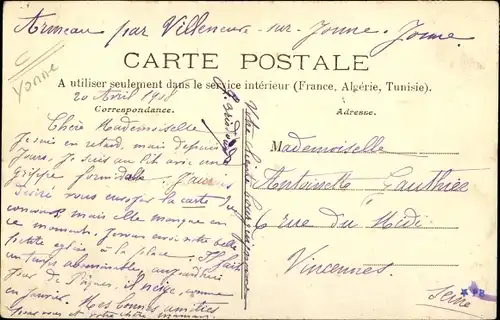 Armeau par Villeneuve-sur-Yonne. Yonne.
Yonne
CARTE POSTALE
A utiliser seulement dans le service intérieur (France, Algérie, Tunisie).
20 Avril 1908
Correspondance.
Adresse.
Chère Mademoiselle
Je suis en retard, mais depuis
jours, je suis au lit avec une
grippe formidable. J'aurais
désiré vous envoyer la carte du
mais elle manque en
ce moment. Je vous envoie notre belle
petite église à la place. Il fait
un temps abominable, aujourd'hui
jour de Pâques, il neige, comme
en janvier. Mes bonnes amitiés
pour vous et votre chère maman.
Votre
Mademoiselle
Antoinette Gauthier
6 rue du Midi
Vincennes.
Seine